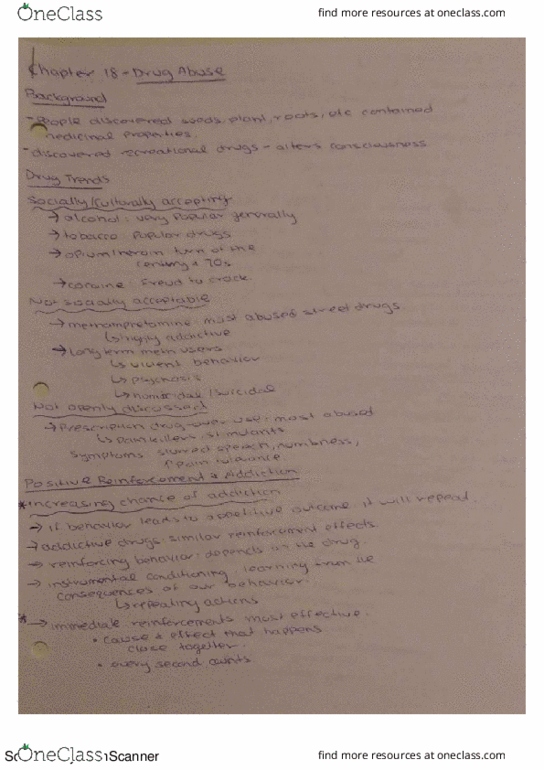 OneClass
find more resources at oneclass.com
Chapter 18 - Drug Abuse
Background
- People discovered seeds, plant, roots, etc contained
medicinal properties.
- discovered recreational drugs - alters consciousness.
Drug Trends
Socially/Culturally accepting
→ alcohol: very popular generally
→ tobacco: popular drugs
→ opium/heroin: turn of the
century & 70s
→ cocaine: Freud to crack.
Not socially acceptable
→ methamphetamine: most abused street drugs
↳ highly addictive
→ long term meth users
↳ violent behavior
↳ psychosis
↳ homicidal/suicidal
Not openly discussed
→ Prescription drug-over use: most abused
↳ painkillers, stimulants
symptoms: slurred speech, numbness,
↑pain tolerance.
Positive Reinforcement & Addiction
* Increasing chance of addiction
→ if behavior leads to positive outcome: it will repeat.
→ addictive drugs: similar reinforcement effects.
→ reinforcing behavior: depends on the drug.
→ instrumental conditioning: learning from the
consequences of our behavior.
↳ repeating actions
* → immediate reinforcements most effective.
• cause & effect that happens
close together.
• every second counts
OneClass
Scanner
find more resources at oneclass.com